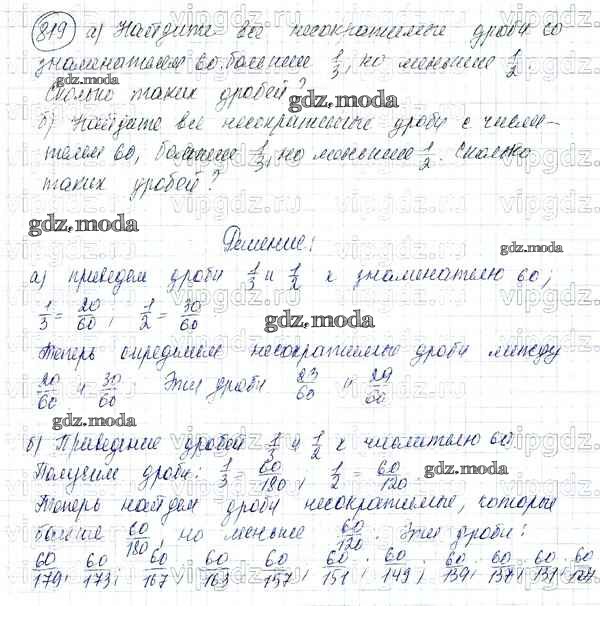 819 а) Найдите все несократимые дроби со
знаменателем 60, большие 1/3, но меньшие 1/2.
Сколько таких дробей?
б) Найдите все несократимые дроби с числи-
телем 60, большие 1/3, но меньшие 1/2. Сколько
таких дробей?
gdz.moda
Решение:
а) приведем дроби 1/3 и 1/2 к знаменателю 60;
1/3 = 20/60; 1/2 = 30/60
gdz.moda
Теперь определим несократимые дроби между
20/60 и 30/60. Эти дроби 23/60 и 29/60
gdz.moda
б) Приведение дробей 1/3 и 1/2 к числителю 60
Получим дроби: 1/3 = 60/180; 1/2 = 60/120.
gdz.moda
Теперь найдем дроби несократимые, которые
больше 60/180, но меньше 60/120. Эти дроби:
60/179; 60/173; 60/167; 60/163; 60/157; 60/151; 60/149; 60/139; 60/137; 60/131; 60/127
vipgdz.ru